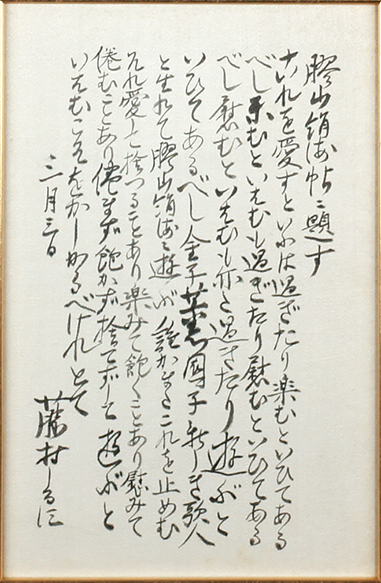 膠山絹海帖ニ題す
これを愛すといふは過ぎたり楽むといひてある
べし楽むといえむも過ぎたり慰むといひてある
べし慰むといえむも亦た過ぎたり遊ぶと
いひてあるべし金子薫園子新しき歌人
と生れて膠山絹海ニ遊ぶ誰かまたこれを止めむ
それ愛と捨つることあり楽みて飽くことあり慰みて
倦むことあり倦まず飽かず捨てずして遊ぶと
いえむこそをかしかるべけれとて
三月三日
藤村しるす